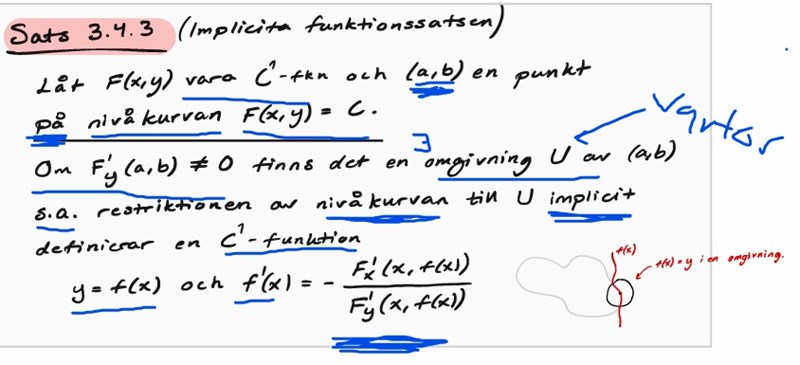 Sats 3.4.3 (Implicita funktionssatsen)
Låt F(x,y) vara C¹-fkn och (a,b) en punkt
på nivåkurvan F(x,y) = C.
∃
Om F'y (a,b) ≠ 0 finns det en omgivning U av (a,b)
s.a. restriktionen av nivåkurvan till U implicit
definierar en C¹-funktion
y = f(x) och f'(x) = - F'x (x, f(x)) / F'y (x, f(x))
f(x)
f(x) = y i en omgivning.